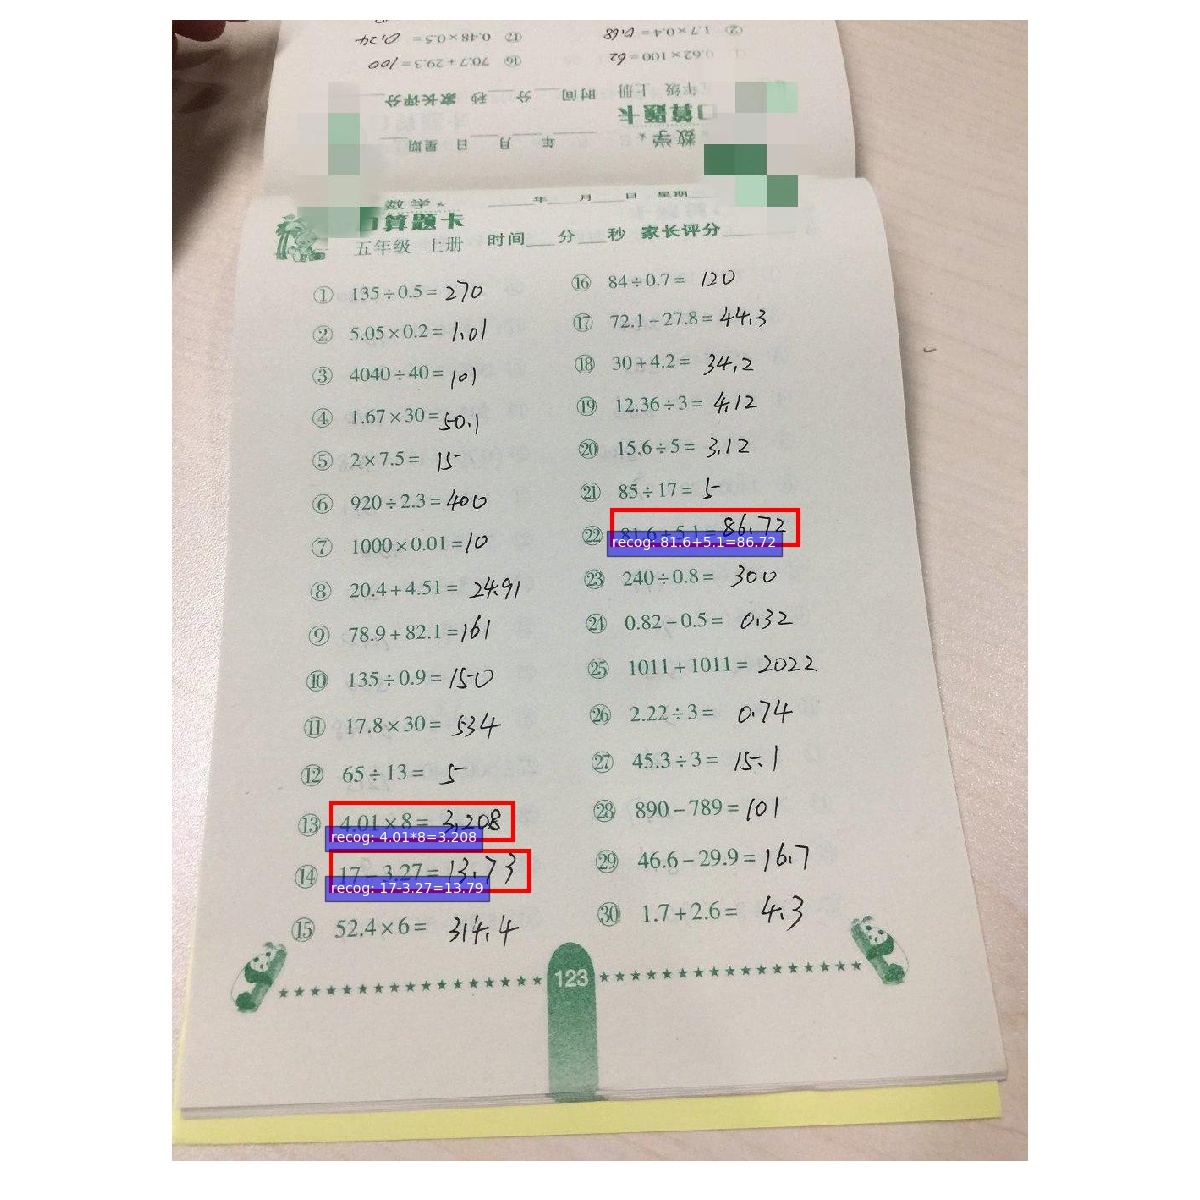 ② 1.7×0.4= 0.68
⑰ 0.48×0.5= 0.24
① 0.62×100= 62
⑯ 70.7+29.3= 100
年级 上册 时间 分 秒 家长评分
口算题卡
数学 年 月 日 星期
数学 年 月 日 星期
口算题卡
五年级 上册 时间 分 秒 家长评分
① 135÷0.5= 270
② 5.05×0.2= 1.01
③ 4040÷40= 101
④ 1.67×30= 50.1
⑤ 2×7.5= 15
⑥ 920÷2.3= 400
⑦ 1000×0.01= 10
⑧ 20.4+4.51= 24.91
⑨ 78.9+82.1= 161
⑩ 135÷0.9= 150
⑪ 17.8×30= 534
⑫ 65÷13= 5
⑬ 4.01×8= 3.208
recog: 4.01*8=3.208
⑭ 17-3.27= 13.73
recog: 17-3.27=13.79
⑮ 52.4×6= 314.4
⑯ 84÷0.7= 120
⑰ 72.1-27.8= 44.3
⑱ 30+4.2= 34.2
⑲ 12.36÷3= 4.12
⑳ 15.6÷5= 3.12
㉑ 85÷17= 5
㉒ 81.6+5.1= 86.72
recog: 81.6+5.1=86.72
㉓ 240÷0.8= 300
㉔ 0.82-0.5= 0.32
㉕ 1011+1011= 2022
㉖ 2.22÷3= 0.74
㉗ 45.3÷3= 15.1
㉘ 890-789= 101
㉙ 46.6-29.9= 16.7
㉚ 1.7+2.6= 4.3
123